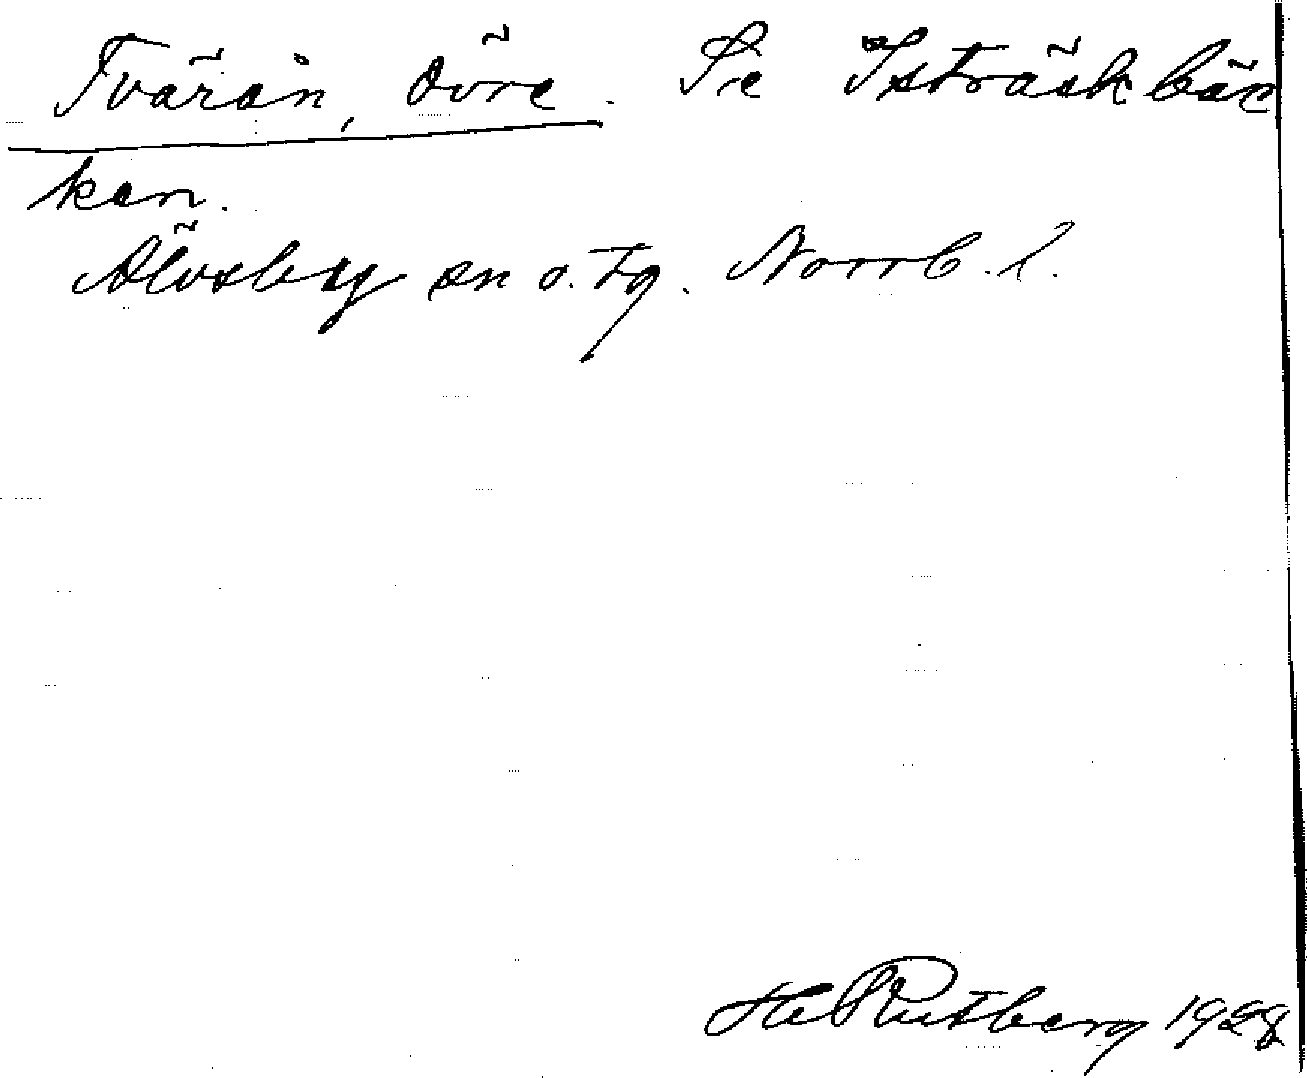 Tvärån, övre. Se Isträskbäc
ken.
Älvsby sn o. tg. Norrb. l.
H Rutberg 1928